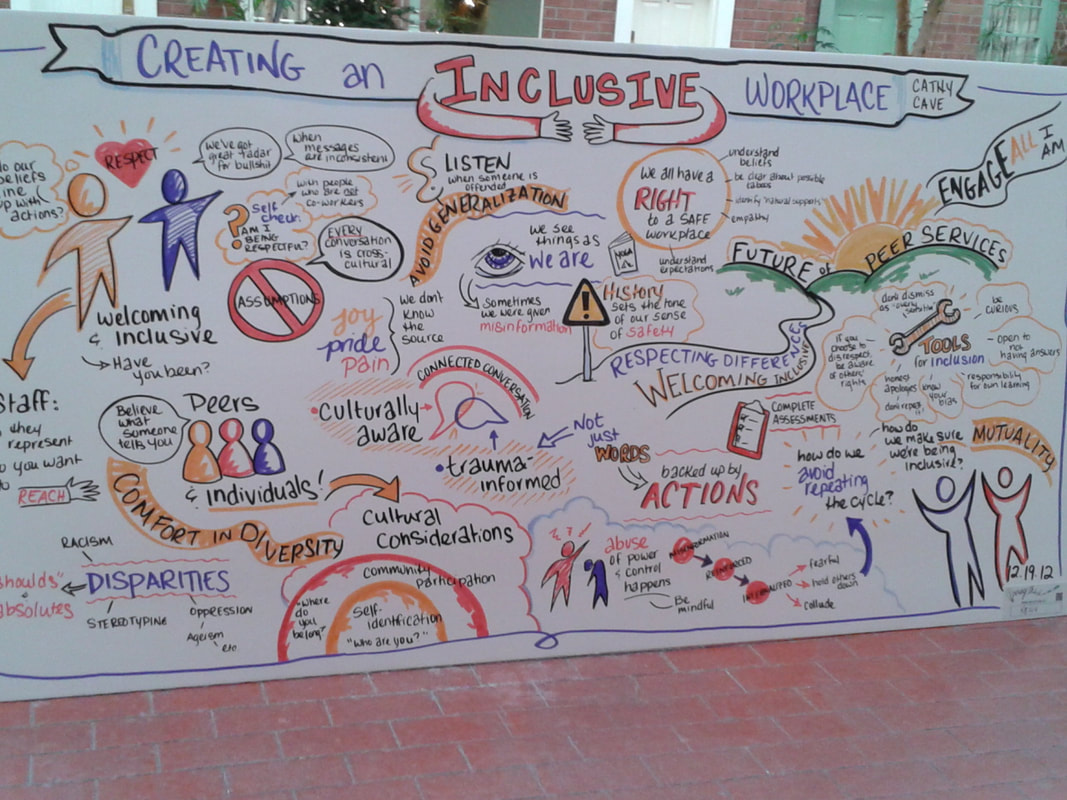 CREATING an INCLUSIVE WORKPLACE
CATHY
CAVE
do our
beliefs
line
up with
actions?
RESPECT
We've got
great radar
for bullshit
When
messages
are inconsistent
with people
who are not
co-workers
Self
check:
AM I
BEING
RESPECTFUL?
EVERY
conversation
is cross-
cultural
ASSUMPTIONS
Welcoming
& inclusive
Have
you been?
LISTEN
when someone is
offended
AVOID GENERALIZATION
we see
things as
we are
Sometimes
we were given
misinformation
joy
pride
pain
we don't
know
the
source
We all have a
RIGHT
to a SAFE
workplace
understand
beliefs
be clear about possible
identify natural supports
empathy
understand
expectations
History
sets the tone
of our sense
of safety
ENGAGE ALL I
AM
FUTURE of PEER SERVICES
RESPECTING DIFFERENCES
WELCOMING INCLUSIVE
don't dismiss
as "overly
sensitive"
be
curious
TOOLS
for inclusion
open to
not
having answers
if you
choose to
disrespect,
be aware
of others'
rights
honest
apologies
don't repeat
it!
know
your
bias
responsibility
for own learning
Staff:
they
represent
you want
to
REACH
Believe
what
someone
tells you
Peers
& individuals!
COMFORT IN DIVERSITY
CONNECTED CONVERSATION
• Culturally
aware
• trauma-
informed
Not
just
WORDS
backed up by
ACTIONS
COMPLETE
ASSESSMENTS
how do we
avoid
repeating
the cycle?
how do
we make sure
we're being
inclusive?
MUTUALITY
RACISM
"shoulds"
absolutes
DISPARITIES
STEREOTYPING
OPPRESSION
Ageism
etc
Cultural
Considerations
community
participation
"Where
do
you
belong?"
Self-
identification
"Who are you?"
abuse
of power
& control
happens
Be
mindful
MISINFORMATION
REINFORCED
INTERNALIZED
fearful
hold others
down
collude
12.19.12